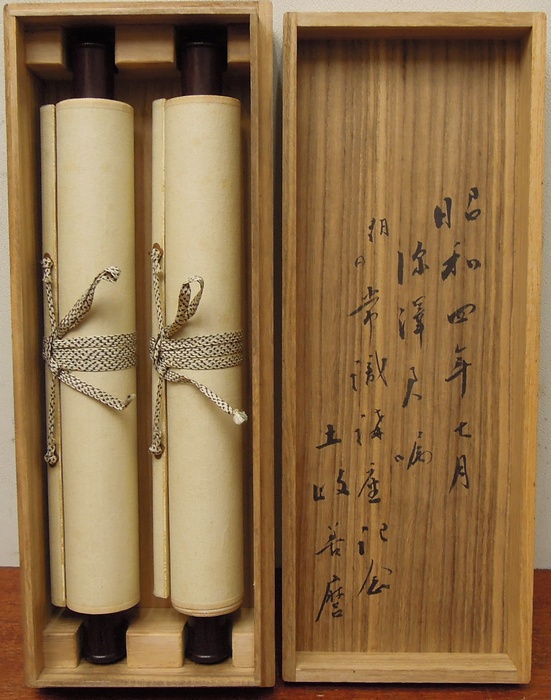 昭和四年七月
深澤君嘱
朝の常識講座記念
土岐善麿